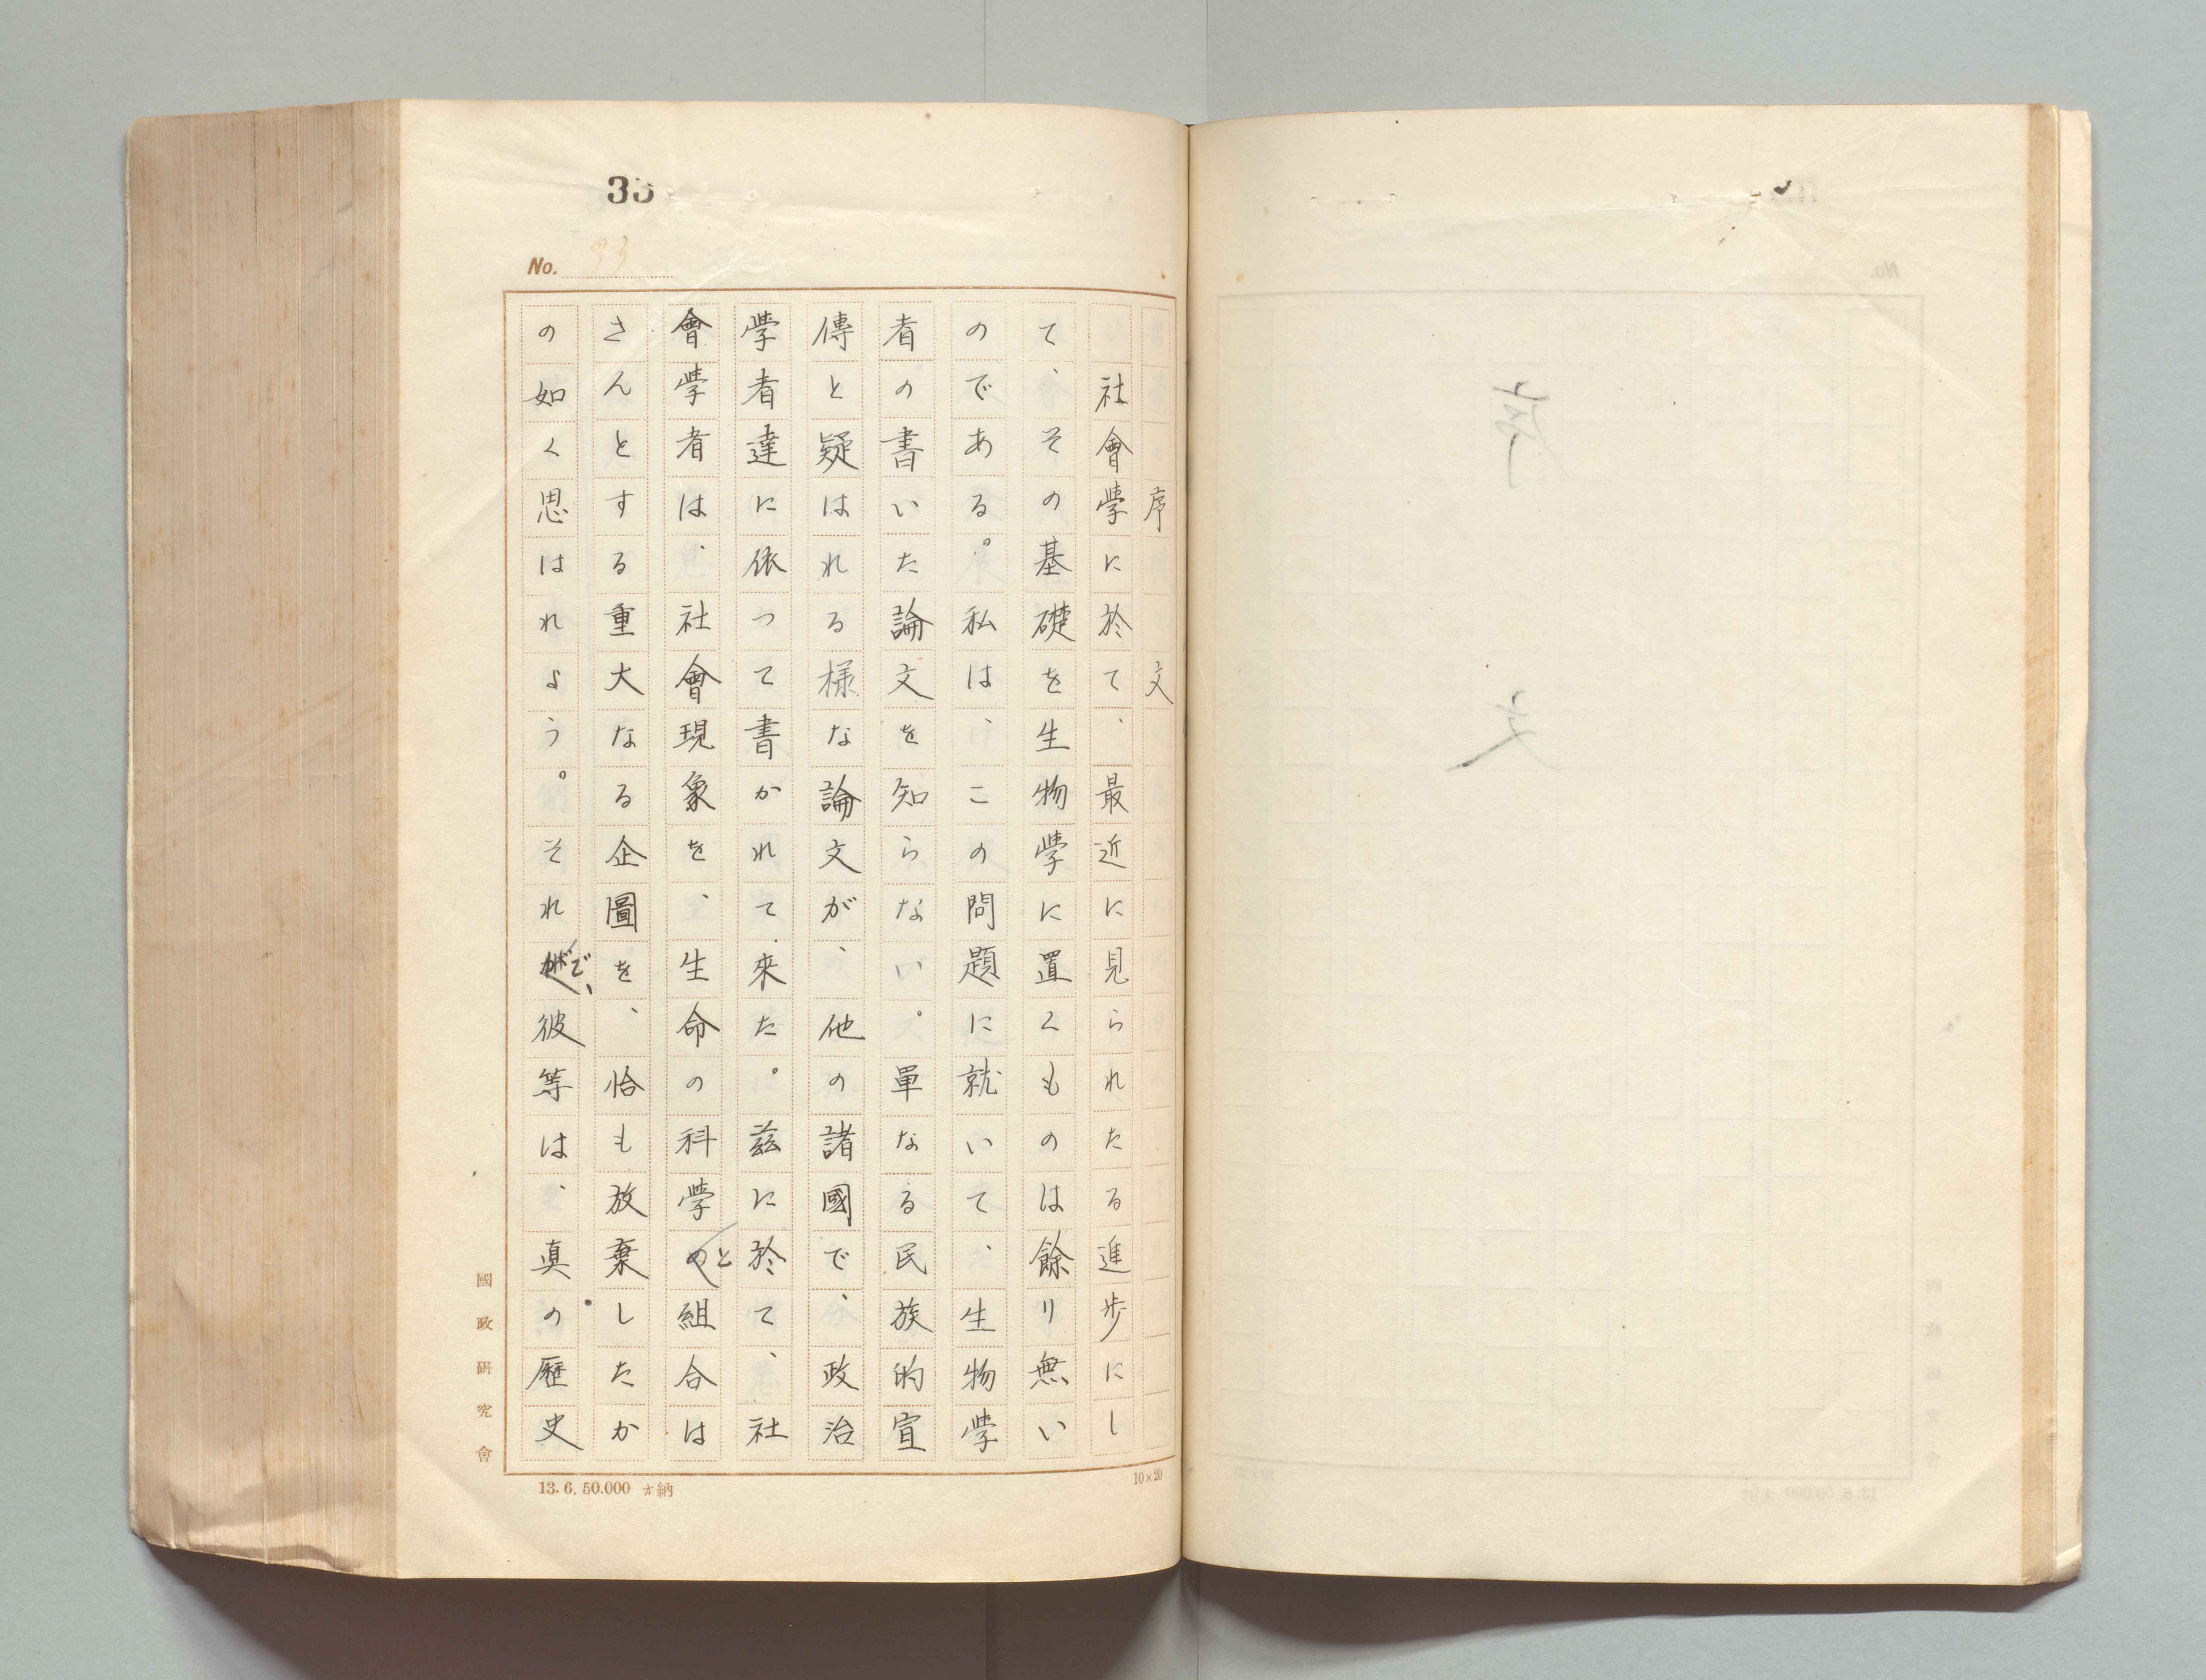 33
No. 33
序文
社會學に於て、最近に見られたる進歩にし
て、その基礎を生物學に置くものは餘り無い
のである。私は、この問題に就いて、生物學
者の書いた論文を知らない。單なる民族的宣
傳と疑はれる樣な論文が、他の諸國で、政治
學者達に依つて書かれて來た。茲に於て、社
會學者は、社會現象を、生命の科學のと組合は
さんとする重大なる企圖を、恰も放棄したか
の如く思はれよう。それがで、彼等は、眞の歷史
國政研究會
13.6.50.000 納
10×20